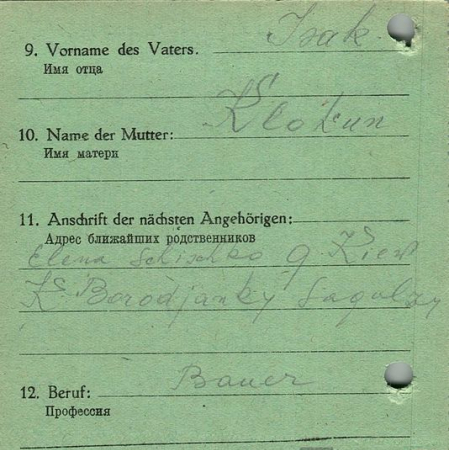 Isak
9. Vorname des Vaters.
Имя отца
Klokun
10. Name der Mutter:
Имя матери
11. Anschrift der nächsten Angehörigen:
Адрес ближайших родственников
Elena Schischko g Kiew
K Borodjanky
Bauer
12. Beruf:
Профессия